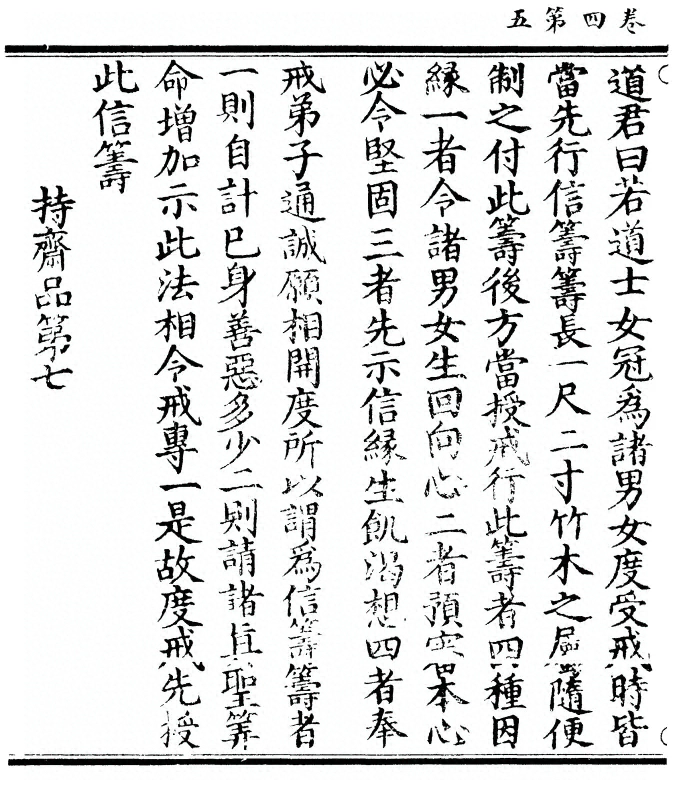 卷四第五
道君曰若道士女冠為諸男女度受戒時皆
當先行信籌籌長一尺二寸竹木之屬隨便
制之付此籌後方當授戒行此籌者四種因
緣一者令諸男女生回向心二者預審本心
必令堅固三者先示信緣生飢渴想四者奉
戒弟子通誠願相開度所以謂為信籌籌者
一則自計巳身善惡多少二則請諸真聖筭
命增加示此法相令戒專一是故度戒先授
此信籌
持齋品第七